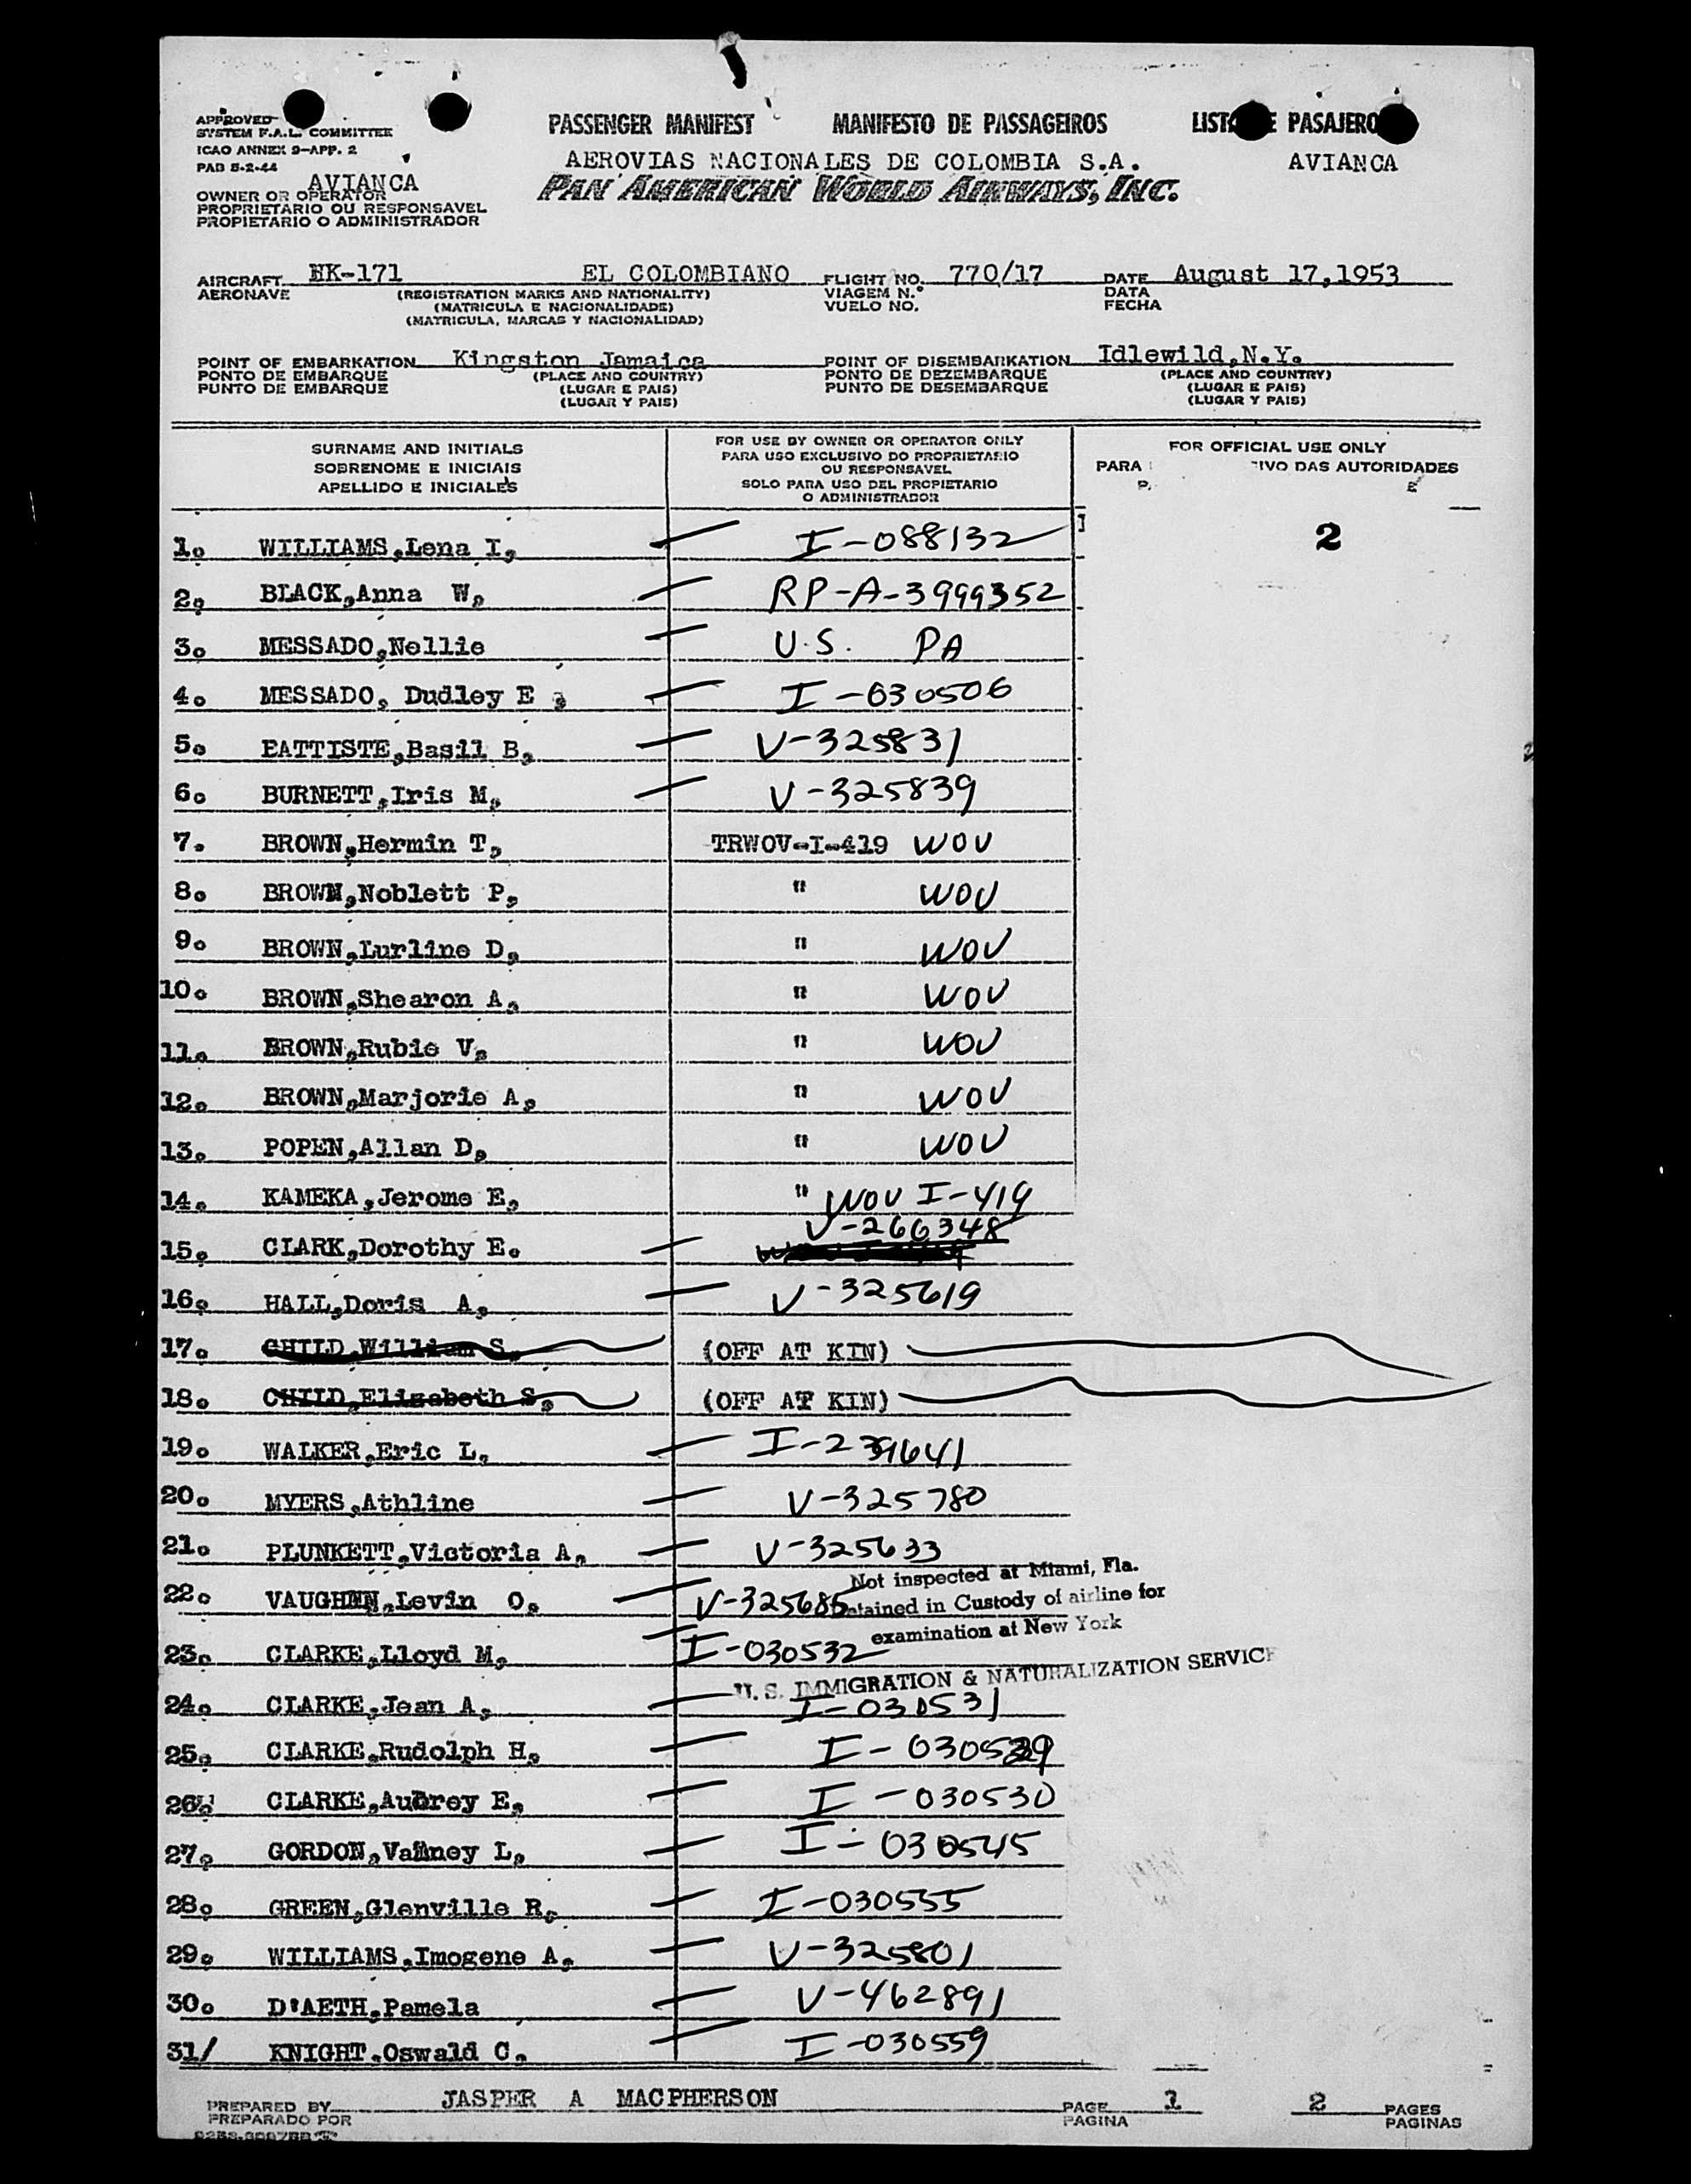 APPROVED
SYSTEM F.A.L. COMMITTEE
ICAO ANNEX 9-APP. 2
PAD 5-2-44
PASSENGER MANIFEST MANIFESTO DE PASSAGEIROS PASAJERO
AEROVIAS NACIONALES DE COLOMBIA S.A. AVIANCA
PAN AMERICAN WORLD AIRWAYS, INC.
AVIANCA
OWNER OR OPERATOR
PROPRIETARIO OU RESPONSAVEL
PROPIETARIO O ADMINISTRADOR
AIRCRAFT HK-171 EL COLOMBIANO FLIGHT NO. 770/17 DATE August 17,1953
AERONAVE (REGISTRATION MARKS AND NATIONALITY) VIAGEM N.° DATA
(MATRICULA E NACIONALIDADE) VUELO NO. FECHA
(MATRICULA, MARCAS Y NACIONALIDAD)
POINT OF EMBARKATION Kingston Jamaica POINT OF DISEMBARKATION Idlewild,N.Y.
PONTO DE EMBARQUE (PLACE AND COUNTRY) PONTO DE DEZEMBARQUE (PLACE AND COUNTRY)
PUNTO DE EMBARQUE (LUGAR E PAIS) PUNTO DE DESEMBARQUE (LUGAR E PAIS)
(LUGAR Y PAIS) (LUGAR Y PAIS)
SURNAME AND INITIALS
SOBRENOME E INICIAIS
APELLIDO E INICIALES
FOR USE BY OWNER OR OPERATOR ONLY
PARA USO EXCLUSIVO DO PROPRIETARIO
OU RESPONSAVEL
SOLO PARA USO DEL PROPIETARIO
O ADMINISTRADOR
FOR OFFICIAL USE ONLY
PARA IVO DAS AUTORIDADES
2
1. WILLIAMS,Lena I. I-088132
2. BLACK,Anna W. RP-A-3999352
3. MESSADO,Nellie U.S. PA
4. MESSADO, Dudley E. I-030506
5. BATTISTE,Basil B. V-325831
6. BURNETT,Iris M. V-325839
7. BROWN,Hermin T. TRWOV-I-419 WOV
8. BROWN,Noblett P. " WOV
9. BROWN,Lurline D. " WOV
10. BROWN,Shearon A. " WOV
11. BROWN,Rubie V. " WOV
12. BROWN,Marjorie A. " WOV
13. POPEN,Allan D. " WOV
14. KAMEKA,Jerome E. " WOV I-419
15. CLARK,Dorothy E. V-266348
16. HALL,Doris A. V-325619
17. CHILD,William S. (OFF AT KIN)
18. CHILD,Elizabeth S. (OFF AT KIN)
19. WALKER,Eric L.
20. MYERS,Athline V-325780
21. PLUNKETT,Victoria A. V-325633
Not inspected at Miami, Fla.
22. VAUGHNN,Levin O. V-325685
in Custody of airline for
examination at New York
23. CLARKE,Lloyd M. I-030532
U.S. IMMIGRATION & NATURALIZATION SERVICE
24. CLARKE,Jean A. I-030531
25. CLARKE,Rudolph H.
26. CLARKE,Aubrey E. I-030530
27. GORDON,Vanney L. I-030545
28. GREEN,Glenville R. I-030555
29. WILLIAMS,Imogene A. V-325801
30. D'AETH,Pamela V-462891
31/ KNIGHT,Oswald C. I-030559
PREPARED BY JASPER A MACPHERSON PAGE 1 2 PAGES
PREPARADO POR PAGINA PAGINAS